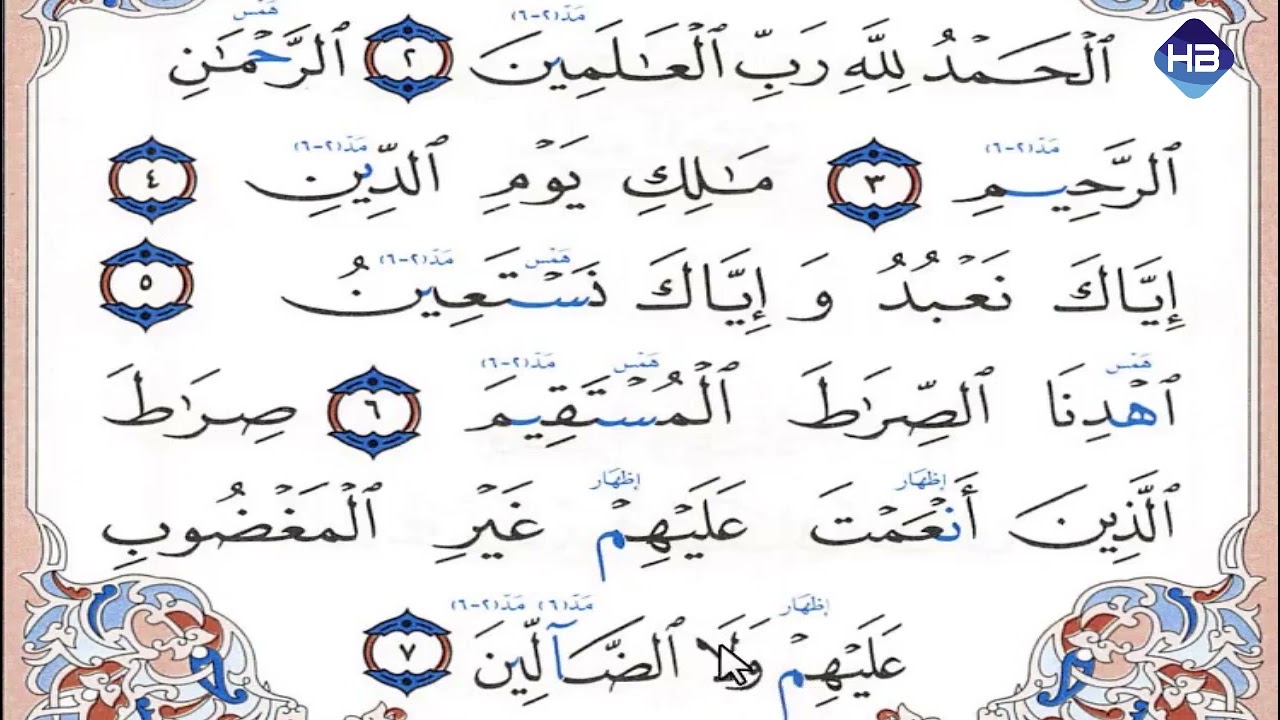 HB
مَدّ(٢-٦) هَمْس
ٱلْحَمْدُ لِلَّهِ رَبِّ ٱلْعَـٰلَمِينَ ٢ ٱلرَّحْمَـٰنِ
مَدّ(٢-٦) مَدّ(٢-٦)
ٱلرَّحِيمِ ٣ مَـٰلِكِ يَوْمِ ٱلدِّينِ ٤
هَمْس مَدّ(٢-٦)
إِيَّاكَ نَعْبُدُ وَ إِيَّاكَ نَسْتَعِينُ ٥
هَمْس هَمْس مَدّ(٢-٦)
ٱهْدِنَا ٱلصِّرَٰطَ ٱلْمُسْتَقِيمَ ٦ صِرَٰطَ
إظهَار إظهَار
ٱلَّذِينَ أَنْعَمْتَ عَلَيْهِمْ غَيْرِ ٱلْمَغْضُوبِ
إظهَار مَدّ(٦) مَدّ(٢-٦)
عَلَيْهِمْ وَلَا ٱلضَّآلِّينَ ٧